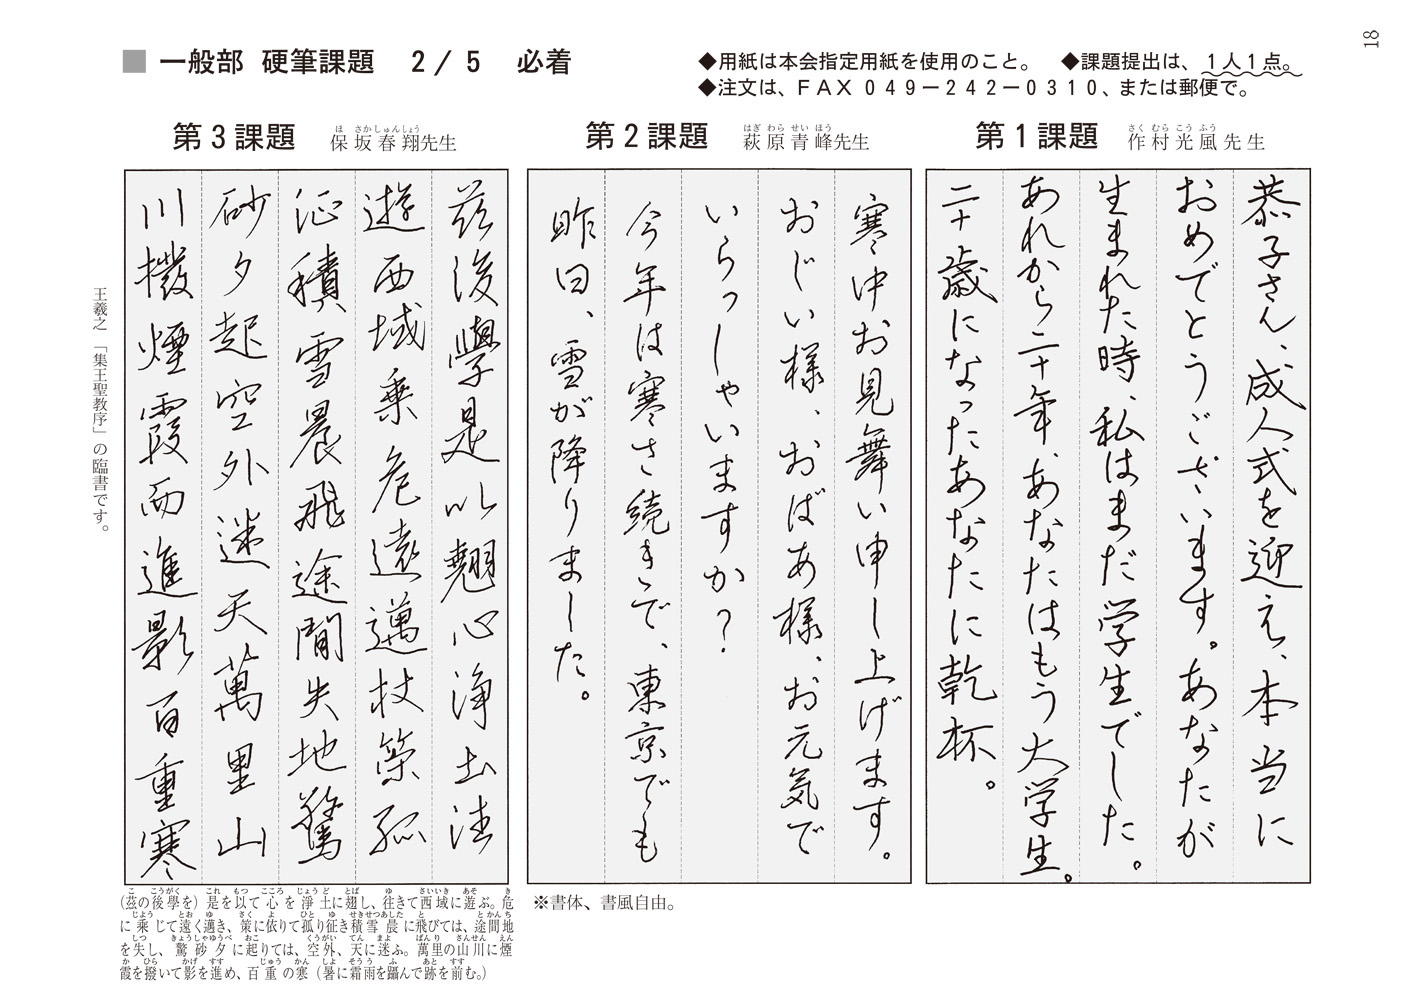 18
■ 一般部 硬筆課題 2/5 必着
◆用紙は本会指定用紙を使用のこと。 ◆課題提出は、1人1点。
◆注文は、FAX049−242−0310、または郵便で。
第1課題 作村光風先生
さくむらこうふう
恭子さん、成人式を迎え、本当に
おめでとうございます。あなたが
生まれた時、私はまだ学生でした。
あれから二十年、あなたはもう大学生。
二十歳になったあなたに乾杯。
第2課題 萩原青峰先生
はぎわらせいほう
寒中お見舞い申し上げます。
おじい様、おばあ様、お元気で
いらっしゃいますか?
今年は寒さ続きで、東京でも
昨日、雪が降りました。
※書体、書風自由。
第3課題 保坂春翔先生
ほさかしゅんしょう
茲後學是以翹心淨土法
遊西域乗危遠邁杖策孤
征積雪晨飛途閒失地驚
砂夕起空外迷天萬里山
川撥煙霞而進影百重寒
王羲之「集王聖教序」の臨書です。
(茲の後學を)是を以て心を淨土に翹し、往きて西域に遊ぶ。危
に乗じて遠く邁き、策に依りて孤り征き積雪晨に飛びては、途間地
を失し、驚砂夕に起りては、空外、天に迷ふ。萬里の山川に煙
霞を撥いて影を進め、百重の寒(暑に霜雨を躡んで跡を前む。)